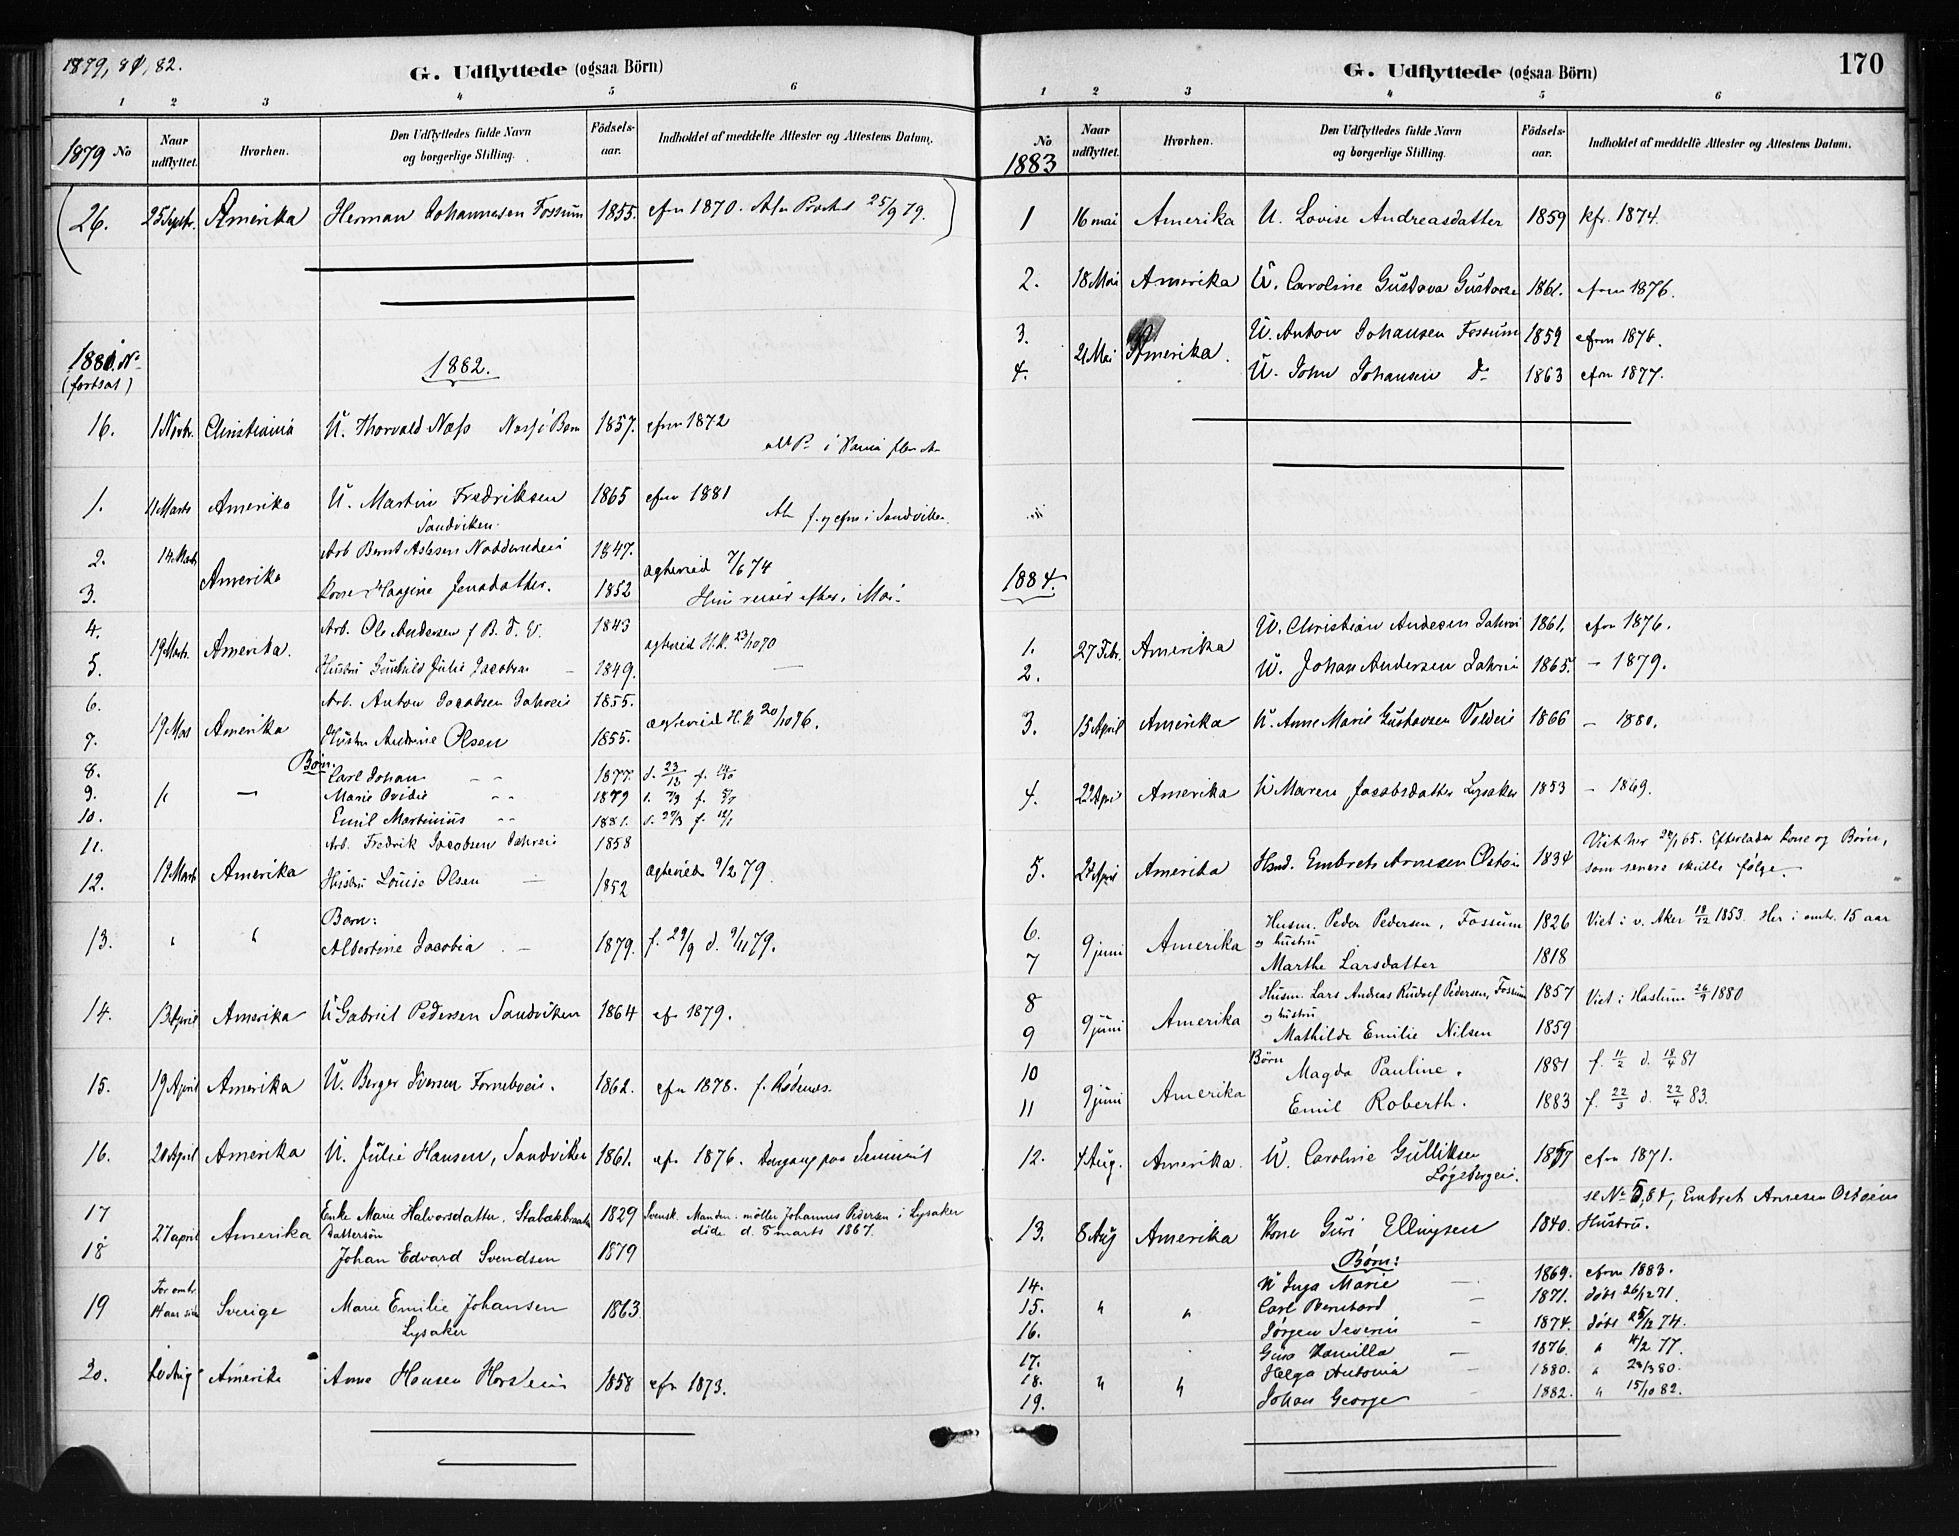 1879, 81, 82.
G. Udflyttede (ogsaa Börn)
1 2 3 4 5 6
1879 No
Naar udflyttet.
Hvorhen.
Den Udflyttedes fulde Navn og borgerlige Stilling.
Födsels-aar.
Indholdet af meddelte Attester og Attestens Datum.
26. 25 Septr. Amerika Herman Johannesen Fossum 1855. cfn 1870. 25/9 79.
1881. No (fortsat)
1882.
16. 1 Novbr. Christiania U. Thorvald Næss 1857. cfm 1872
1. 11 Marts Amerika U. Martin Fredriksen 1865 cfm 1881
Sandviken
2. 14 Marts Arb Bernt Aslesen 1847. ægteviet 7/6 74
3. Amerika Kone Haagine Jensdatter. 1852 Hun reiser efter i Mai
4. Arb. Ole Andersen 1843
5. 19 Marts Amerika. Hustru Gunhild Julie Jacobsen 1849. ægteviet H.K. 23/10 70
6. Arb. Anton Jacobsen Jahrei 1855.
7. 19 Mars Amerika Hustru Andrine Olsen 1855. ægteviet H.K 20/10 76.
Børn.
8. Carl Johan 1877. d. 23/12
9. Marie Ovidie 1879
10. Emil Martinius 1881.
11. Arb. Fredrik Jacobsen Jahrei 1858
12. 19 Marts Amerika Hustru Louise Olsen 1852 ægteviet 9/2 79
Barn:
13. " " Albertine Jacobia 1879. f. 29/9 d. 9/11 79.
14. 13 April Amerika U Gabriel Pedersen Sandviken 1864 cf. 1879.
15. 19 April Amerika U. Berger Iversen Fornebveie. 1862. cfn 1878. f. Rødenes
16. 20 April Amerika U. Julie Hansen, Sandviken 1861. cfn 1876.
17 Enke Marie Halvorsdatter, Stabækbraaten 1829 Svensk. Manden: möller Johannes Pedersen i Lysaker
27 april Amerika Dattersön døde d. 5 marts 1867.
18 Johan Edvard Svendsen 1879
19 For omtr. 14 aar siden Sverige Marie Emilie Johansen 1863
Lysaker
20. Aug Amerika Anne Hansen 1858 cfn 1873.
G. Udflyttede (ogsaa Börn)
170
1 2 3 4 5 6
No
1883
Naar udflyttet.
Hvorhen.
Den Udflyttedes fulde Navn og borgerlige Stilling.
Födsels-aar.
Indholdet af meddelte Attester og Attestens Datum.
1 16 mai Amerika U. Lovise Andreasdatter 1859 kfr. 1874.
2. 18 Mai Amerika U. Caroline Gustava 1861. cfrm 1876.
3. U. Anton Johansen Fossum 1859 cfrm 1876.
21 Mai Amerika.
4. U. John Johansen Do 1863 cfrm 1877.
1884.
1. U. Christian Andersen Jahrei 1861. cfrm 1876.
27 Febr. Amerika
2. U. Johan Andersen Jahrei 1865. – 1879.
3. 15 April Amerika U. Anne Marie Gustavsen 1866 – 1880.
4. 22 April Amerika U Maren Jacobsdatter Lysaker 1853 – 1869.
5. 22 April Amerika Husmd. Embret Arnesen Ostøen 1834 Viet her 28/1 65. Efterlader Kone og Børn,
som senere skulle følge.
6. Husm. Peder Pedersen, Fossum 1826 Viet i v. Aker 18/12 1853. Her i omtr. 15 aar
9 juni Amerika og hustru
7 Marthe Larsdatter 1818
8 Husm. Lars Andreas Rudolf Pedersen, Fossum 1857 Viet i Haslum 26/9 1880
9 juni Amerika og hustru
9 Mathilde Emilie Nilsen 1859
Børn
10 Magda Pauline. 1881 f. 11/2 d. 18/4 81
9 juni Amerika
11 Emil Roberth. 1883 f. 22/3 d. 22/4 83.
12. 4 Aug. Amerika. U. Caroline Gulliksen 1857 cfrm 1871.
Løgebergei.
se No 5, 84, Embret Arnesen Ostøens
13. 8 Aug Amerika Kone Guri Ellingsen 1840. Hustru.
Børn:
14. U Inga Marie 1869. cfrm 1883.
15. " " Carl Bernhard 1871. døbt 26/12 71
16. Jørgen Severin 1874. døbt 25/12 74.
17. Gina Kamilla 1876. " 4/2 77.
18. " " Helga Antonia 1880. " 28/3 80.
19. Johan George 1882. " 15/10 82.